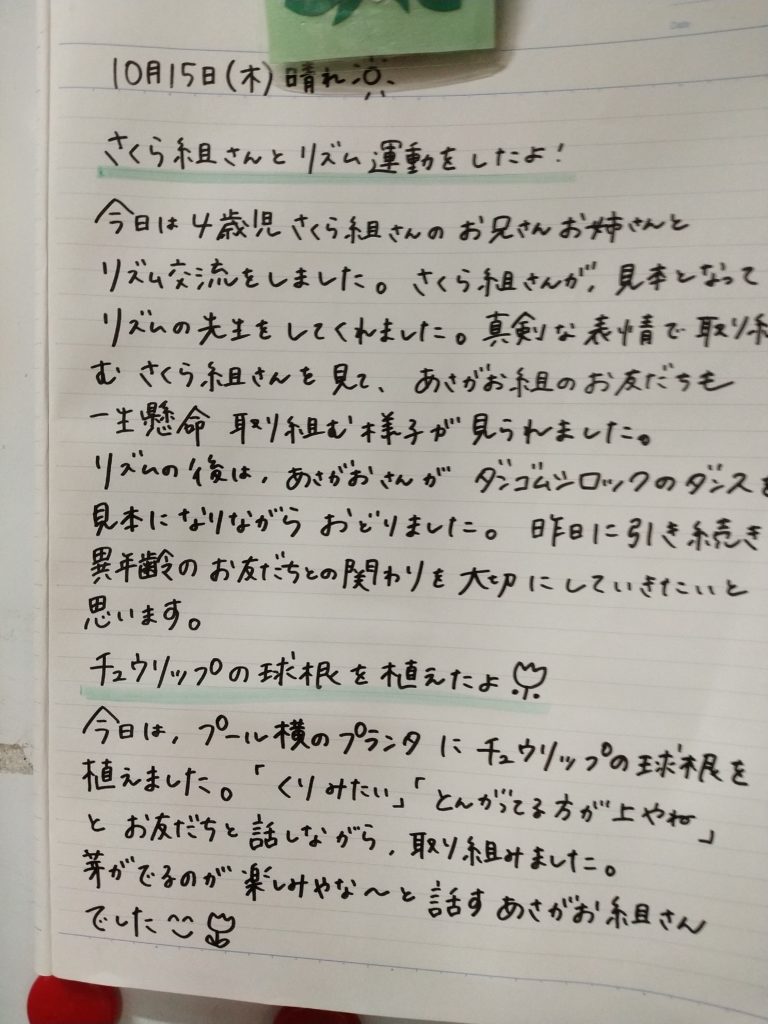 10月15日(木) 晴れ
さくら組さんとリズム運動をしたよ!
今日は4歳児さくら組さんのお兄さんお姉さんと
リズム交流をしました。さくら組さんが、見本となって
リズムの先生をしてくれました。真剣な表情で取り組
むさくら組さんを見て、あさがお組のお友だちも
一生懸命取り組む様子が見られました。
リズムの後は、あさがおさんがダンゴムシロックのダンスを
見本になりながらおどりました。昨日に引き続き
異年齢のお友だちとの関わりを大切にしていきたいと
思います。
チュウリップの球根を植えたよ
今日は、プール横のプランタにチュウリップの球根を
植えました。「くりみたい」「とんがってる方が上やね」
とお友だちと話しながら、取り組みました。
芽がでるのが楽しみやな〜と話すあさがお組さん
でした